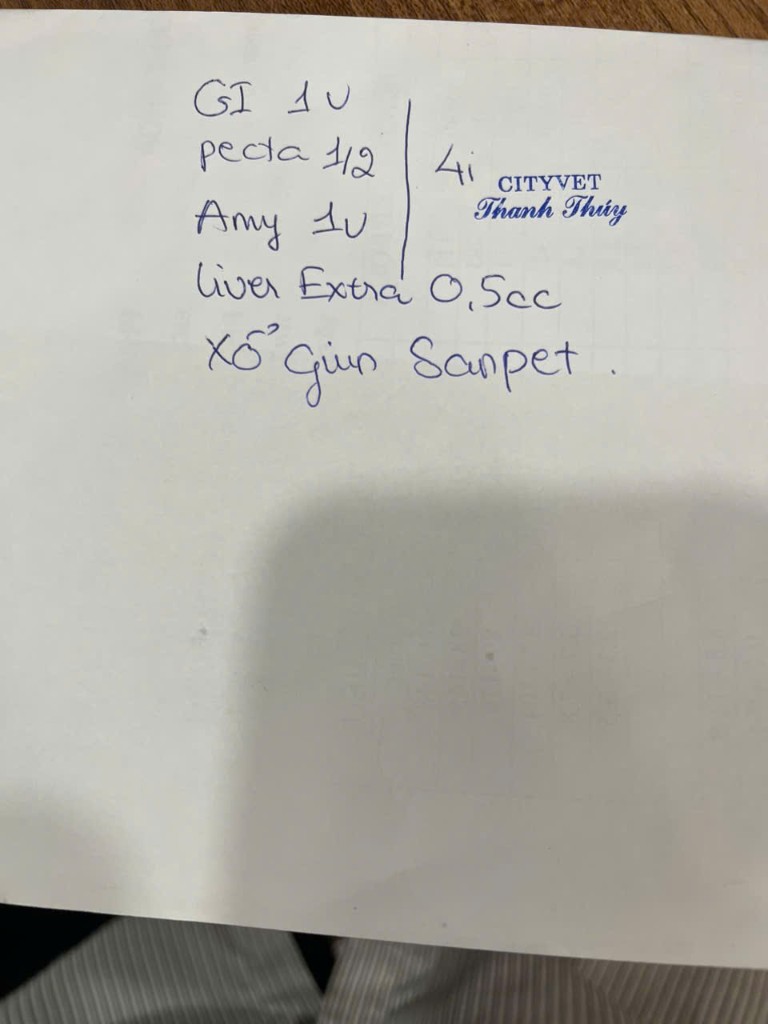 GI 1U
pecta 1/2
Amy 1U
4i
CITYVET
Thanh Thúy
Liver Extra 0,5cc
Xổ Giun Sanpet.